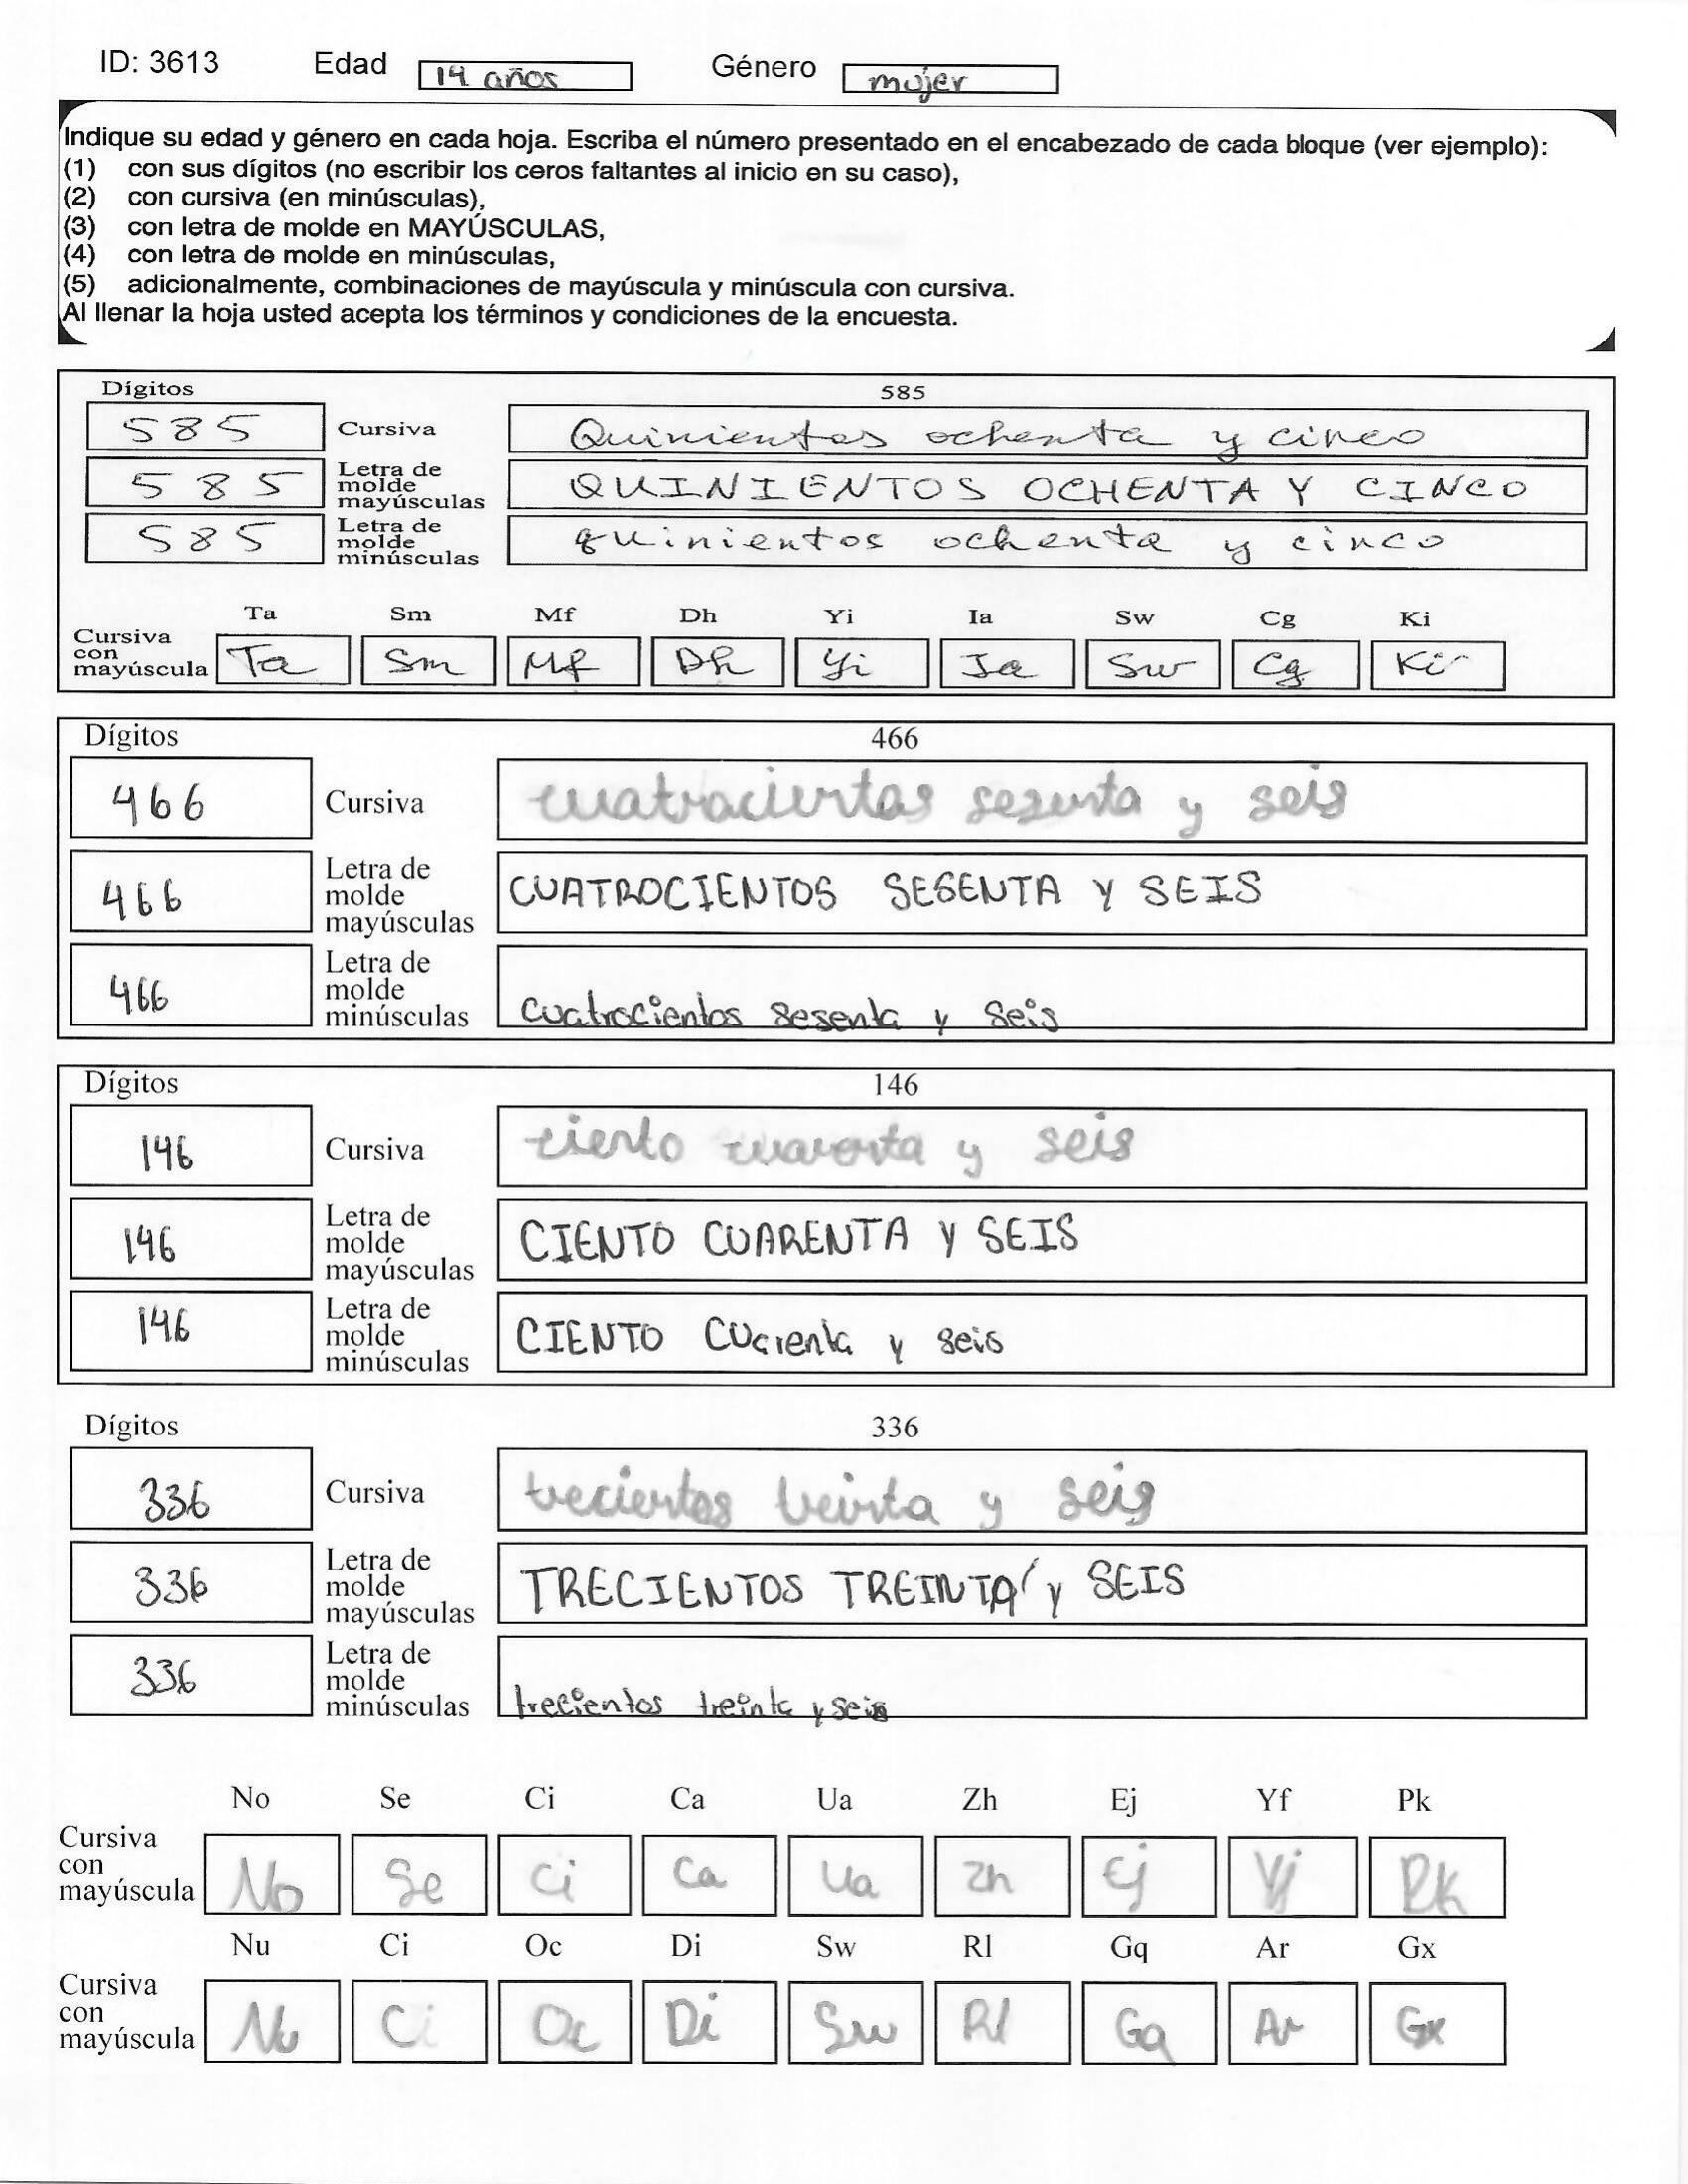 ID: 3613 Edad 14 años Género mujer
Indique su edad y género en cada hoja. Escriba el número presentado en el encabezado de cada bloque (ver ejemplo):
(1) con sus dígitos (no escribir los ceros faltantes al inicio en su caso),
(2) con cursiva (en minúsculas),
(3) con letra de molde en MAYÚSCULAS,
(4) con letra de molde en minúsculas,
(5) adicionalmente, combinaciones de mayúscula y minúscula con cursiva.
Al llenar la hoja usted acepta los términos y condiciones de la encuesta.
Dígitos 585
585 Cursiva Quinientos ochenta y cinco
585 Letra de molde mayúsculas QUINIENTOS OCHENTA Y CINCO
585 Letra de molde minúsculas quinientos ochenta y cinco
Ta Sm Mf Dh Yi Ia Sw Cg Ki
Cursiva con mayúscula Ta Sm Mf Dh Yi Ia Sw Cg Ki
Dígitos 466
466 Cursiva cuatrocientos sesenta y seis
466 Letra de molde mayúsculas CUATROCIENTOS SESENTA Y SEIS
466 Letra de molde minúsculas cuatrocientos sesenta y seis
Dígitos 146
146 Cursiva ciento cuarenta y seis
146 Letra de molde mayúsculas CIENTO CUARENTA Y SEIS
146 Letra de molde minúsculas CIENTO cuarenta y seis
Dígitos 336
336 Cursiva trecientos treinta y seis
336 Letra de molde mayúsculas TRECIENTOS TREINTA y SEIS
336 Letra de molde minúsculas trecientos treinta y seis
No Se Ci Ca Ua Zh Ej Yf Pk
Cursiva con mayúscula No Se Ci Ca Ua Zh Ej Yf Pk
Nu Ci Oc Di Sw Rl Gq Ar Gx
Cursiva con mayúscula Nu Ci Oc Di Sw Rl Gq Ar Gx